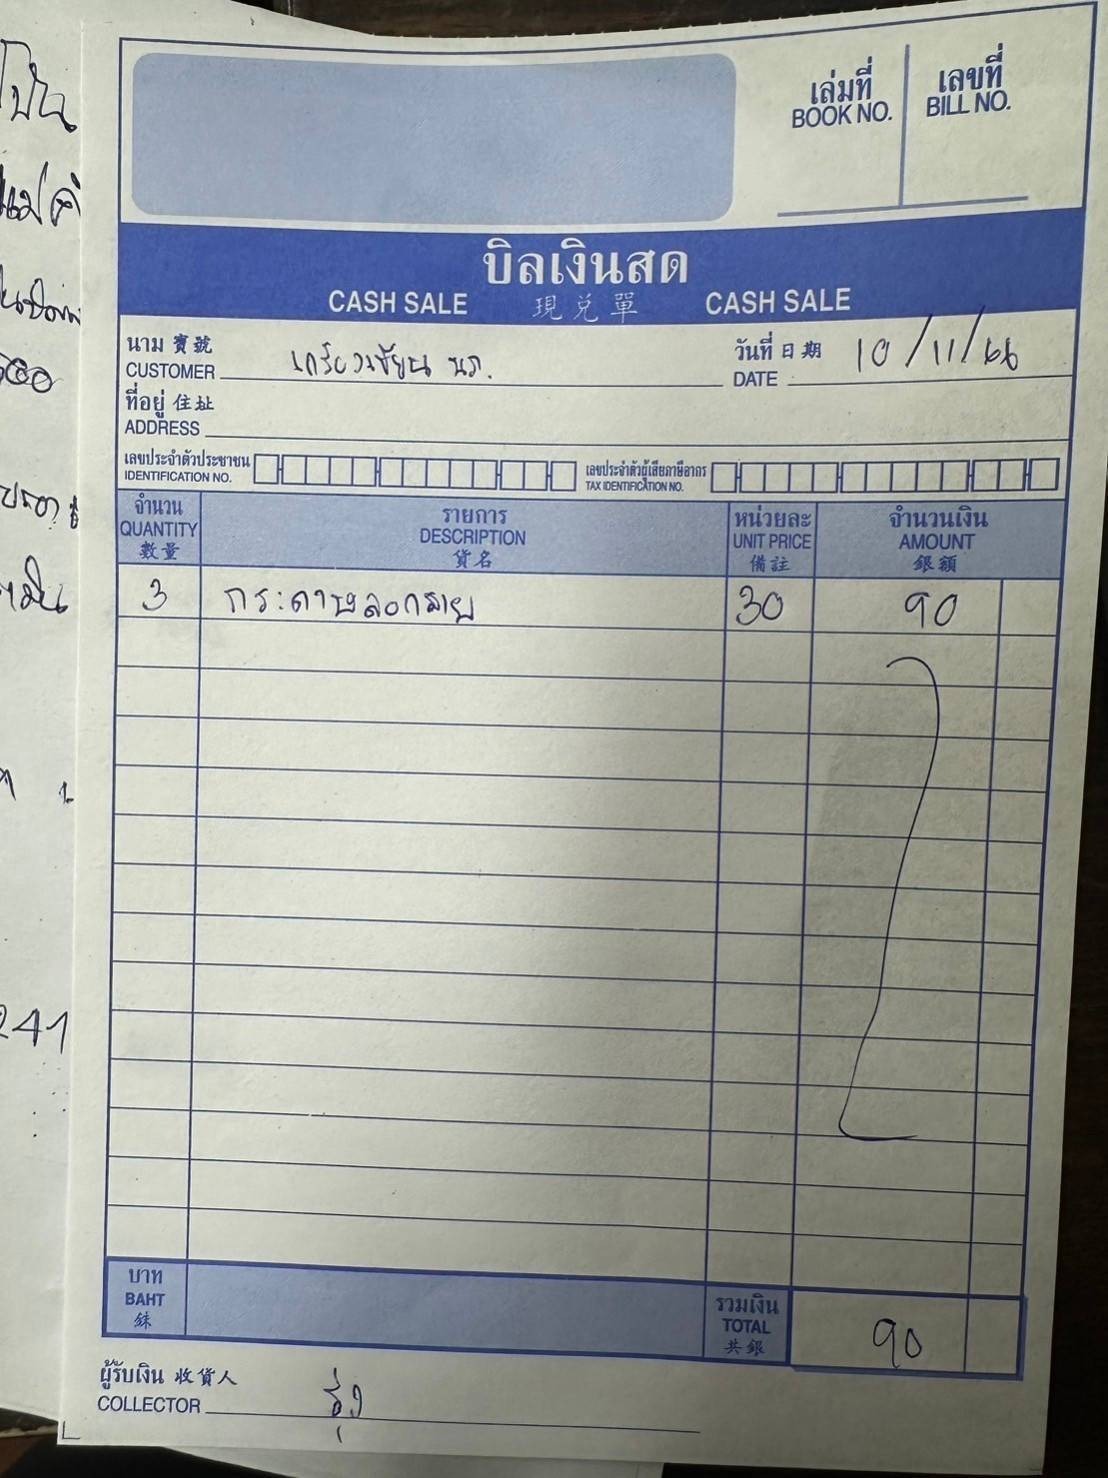 เล่มที่ เลขที่
BOOK NO. BILL NO.
บิลเงินสด
CASH SALE 現兌單 CASH SALE
นาม 寶號 วันที่ 日期 10/11/66
CUSTOMER เกรียงชัย นภ. DATE
ที่อยู่ 住址
ADDRESS
เลขประจำตัวประชาชน เลขประจำตัวผู้เสียภาษีอากร
IDENTIFICATION NO. TAX IDENTIFICATION NO.
จำนวน รายการ หน่วยละ จำนวนเงิน
QUANTITY DESCRIPTION UNIT PRICE AMOUNT
數量 貨名 備註 銀額
3 กระดาษลอกลาย 30 90
บาท รวมเงิน
BAHT TOTAL 90
銖 共銀
ผู้รับเงิน 收貨人
COLLECTOR
241